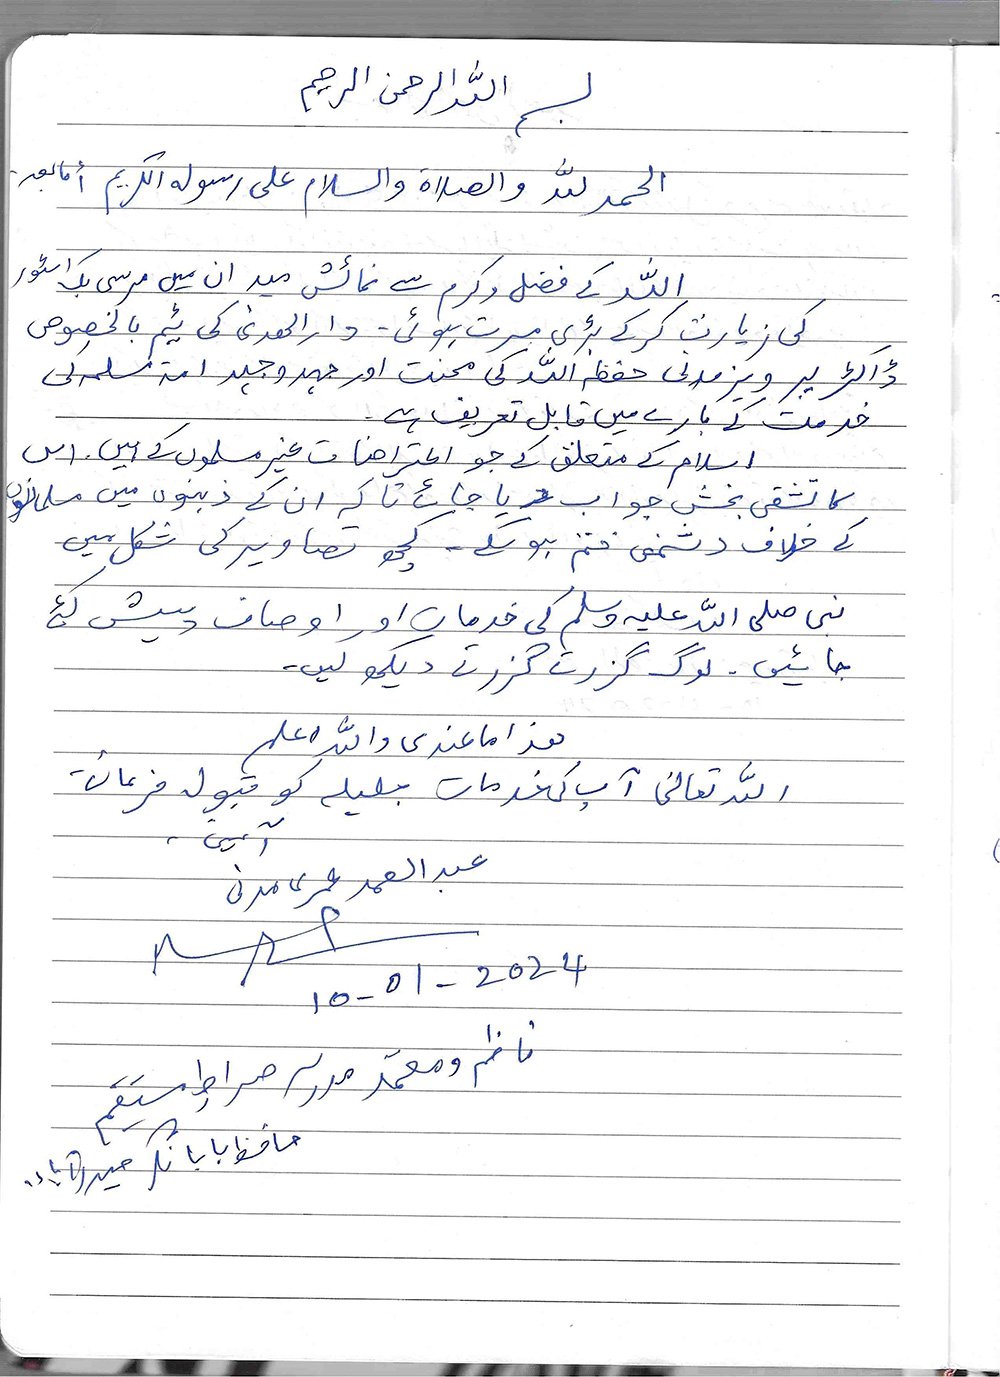 بسم اللہ الرحمن الرحیم
الحمد للہ والصلاۃ والسلام علی رسولہ الکریم أما بعد۔
اللہ کے فضل وکرم سے نمائش میدان میں مرسی بک اسٹور
کی زیارت کرکے بڑی مسرت ہوئی۔ دار الھدی کی ٹیم بالخصوص
ڈاکٹر پرویز مدنی حفظہ اللہ کی محنت اور جہد وجہد امۃ مسلمہ کی
خدمت کے بارے میں قابل تعریف ہے۔
اسلام کے متعلق کے جو اعتراضات غیر مسلموں کے ہیں۔ اس
کا تشفی بخش جواب دیا جائے تاکہ ان کے ذہنوں میں مسلمانوں
کے خلاف دشمنی ختم ہو سکے۔ کچھ تصاویر کی شکل میں
نبی صلی اللہ علیہ وسلم کی خدمات اور اوصاف پیش کئے
جائیں۔ لوگ گزرتے گزرتے دیکھ لیں۔
ھذا ما عندی واللہ اعلم
اللہ تعالیٰ آپ کی خدمات جلیلہ کو قبول فرمائے۔
آمین۔
عبد الصمد عمری مدنی
10-01-2024
ناظم ومعتمد مدرسہ صراط مستقیم
حافظ بابا نگر حیدرآباد